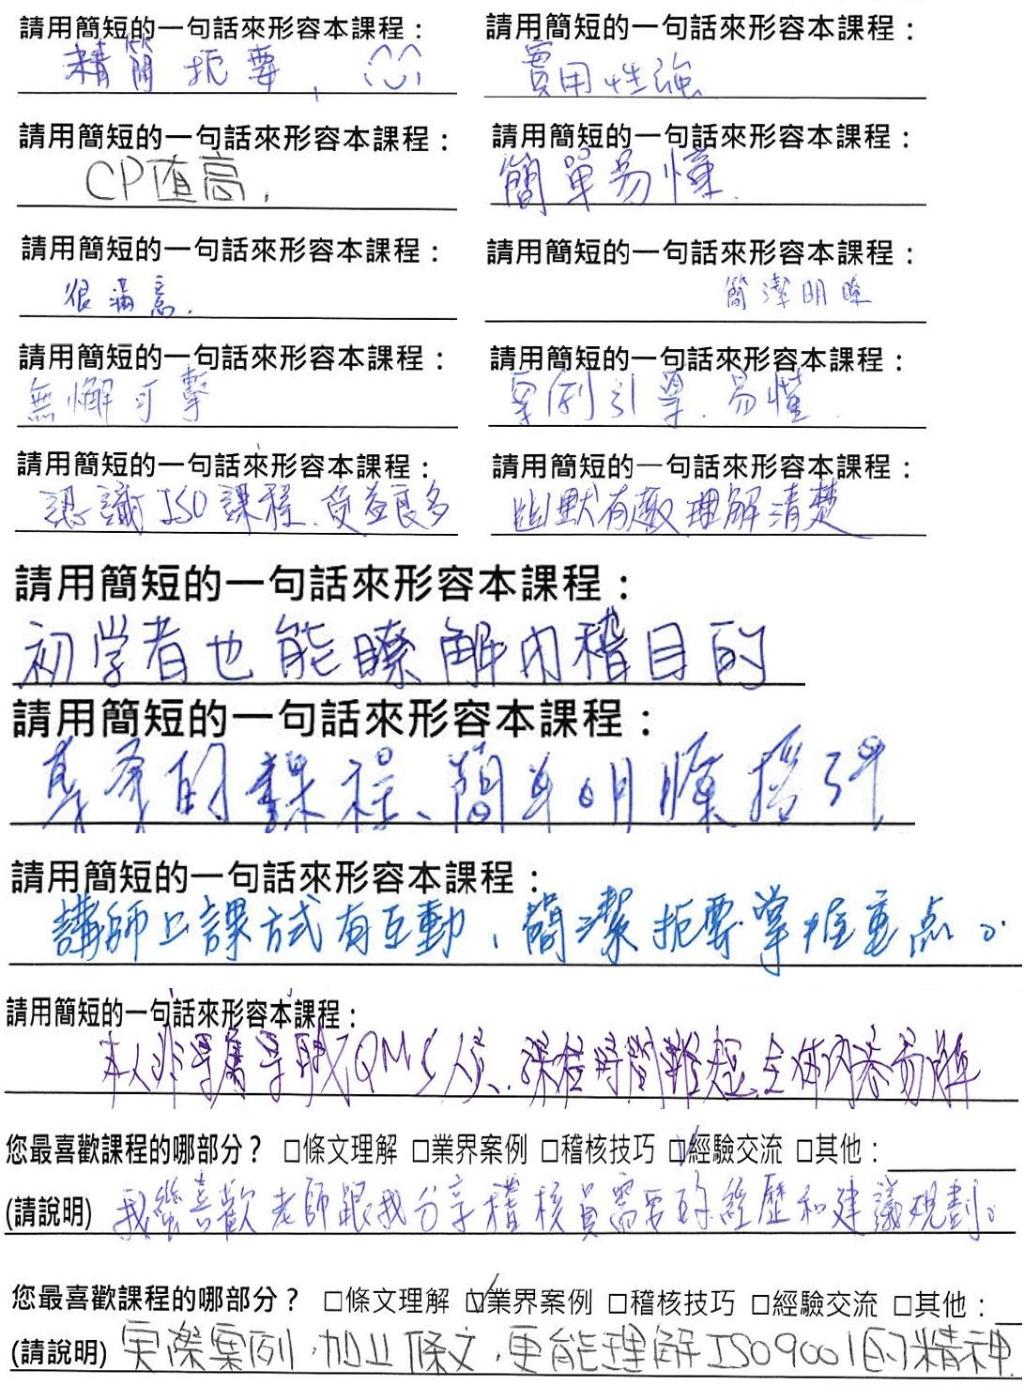 請用簡短的一句話來形容本課程：
精簡扼要,
請用簡短的一句話來形容本課程：
實用性強
請用簡短的一句話來形容本課程：
CP值高,
請用簡短的一句話來形容本課程：
簡單易懂.
請用簡短的一句話來形容本課程：
很滿意.
請用簡短的一句話來形容本課程：
簡潔明瞭
請用簡短的一句話來形容本課程：
無懈可擊
請用簡短的一句話來形容本課程：
案例引導.易懂.
請用簡短的一句話來形容本課程：
認識ISO課程.受益良多
請用簡短的一句話來形容本課程：
幽默有趣理解清楚
請用簡短的一句話來形容本課程：
初学者也能瞭解內稽目的
請用簡短的一句話來形容本課程：
的課程、簡單明瞭
請用簡短的一句話來形容本課程：
講師上課方式有互動，簡潔扼要掌握重点。
請用簡短的一句話來形容本課程：
本人非專屬專職QMS人員.課程時間雖短.全体內容易解
您最喜歡課程的哪部分？ □條文理解 □業界案例 □稽核技巧 ☑經驗交流 □其他：
(請說明) 我蠻喜歡老師跟我分享稽核員需要的經歷和建議規劃。
您最喜歡課程的哪部分？ □條文理解 ☑業界案例 □稽核技巧 □經驗交流 □其他：
(請說明) 実際案例,加上條文,更能理解ISO9001的精神.